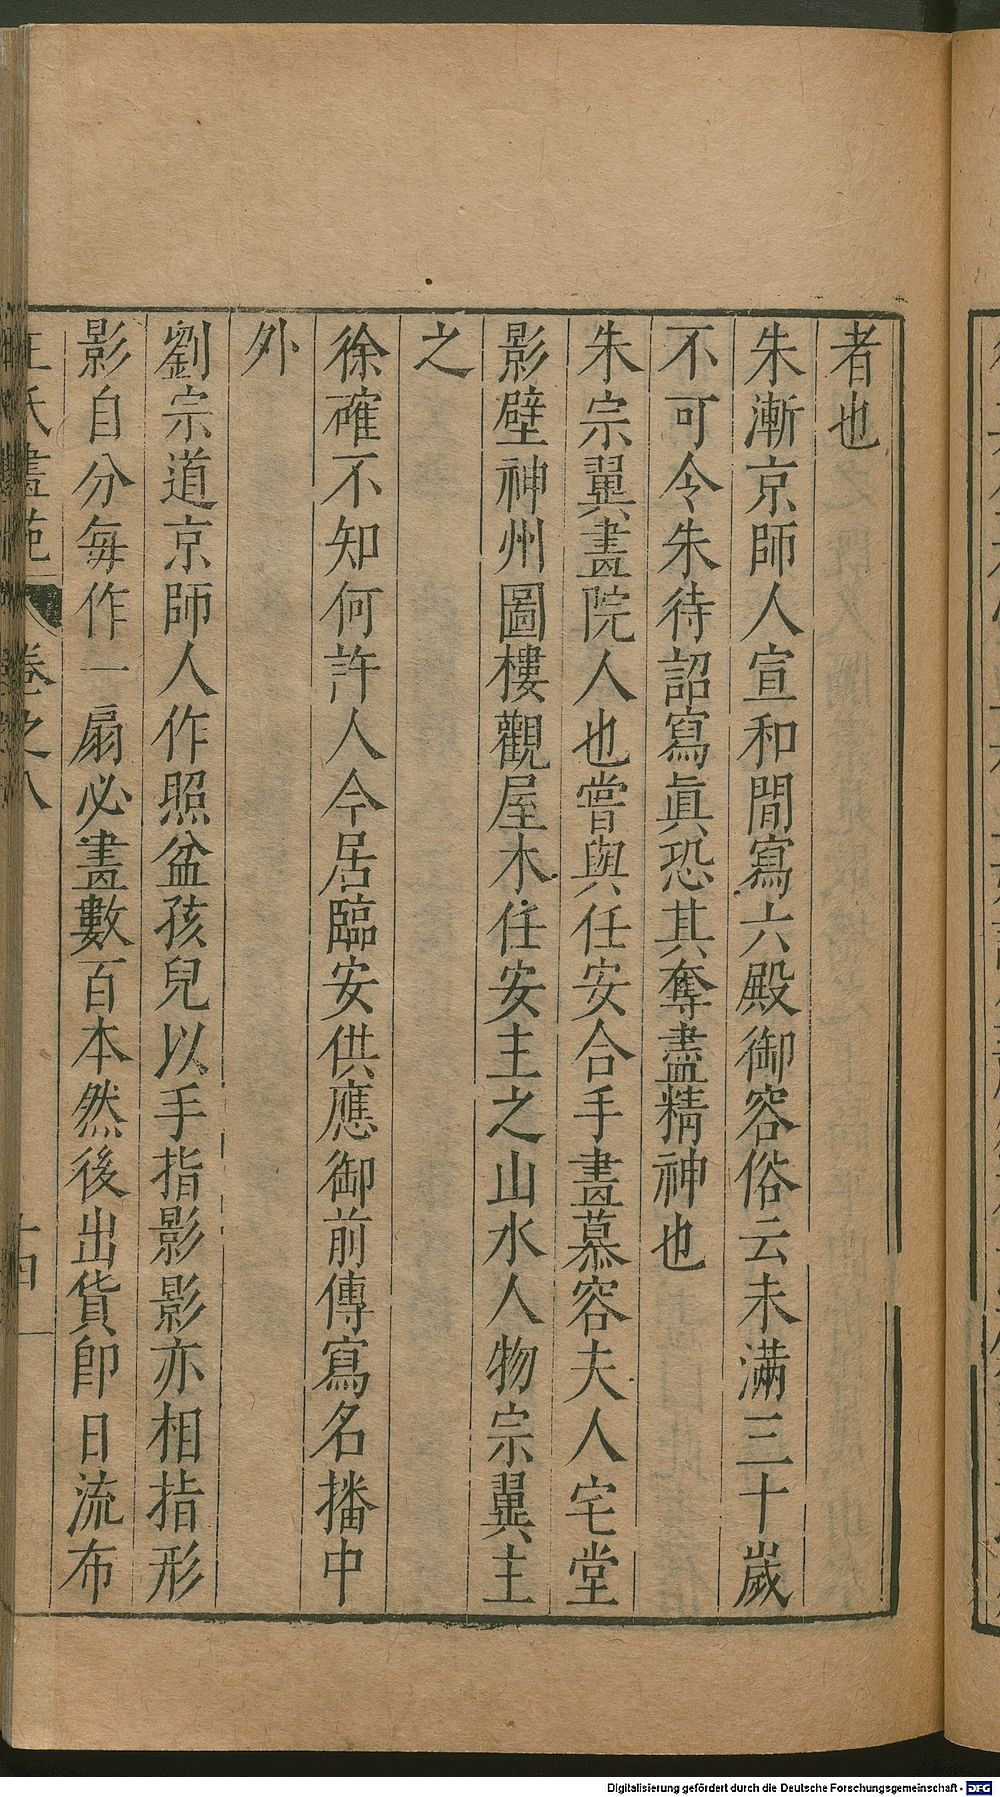 者也
朱漸京師人宣和間寫六殿御容俗云未滿三十歲
不可令朱待詔寫眞恐其奪盡精神也
朱宗翼畫院人也嘗與任安合手畫慕容夫人宅堂
影壁神州圖樓觀屋木任安主之山水人物宗翼主
之
徐確不知何許人今居臨安供應御前傳寫名播中
外
劉宗道京師人作照盆孩兒以手指影影亦相指形
影自分每作一扇必畫數百本然後出貨卽日流布
王氏畫苑 卷之八 十四
Digitalisierung gefördert durch die Deutsche Forschungsgemeinschaft - DFG